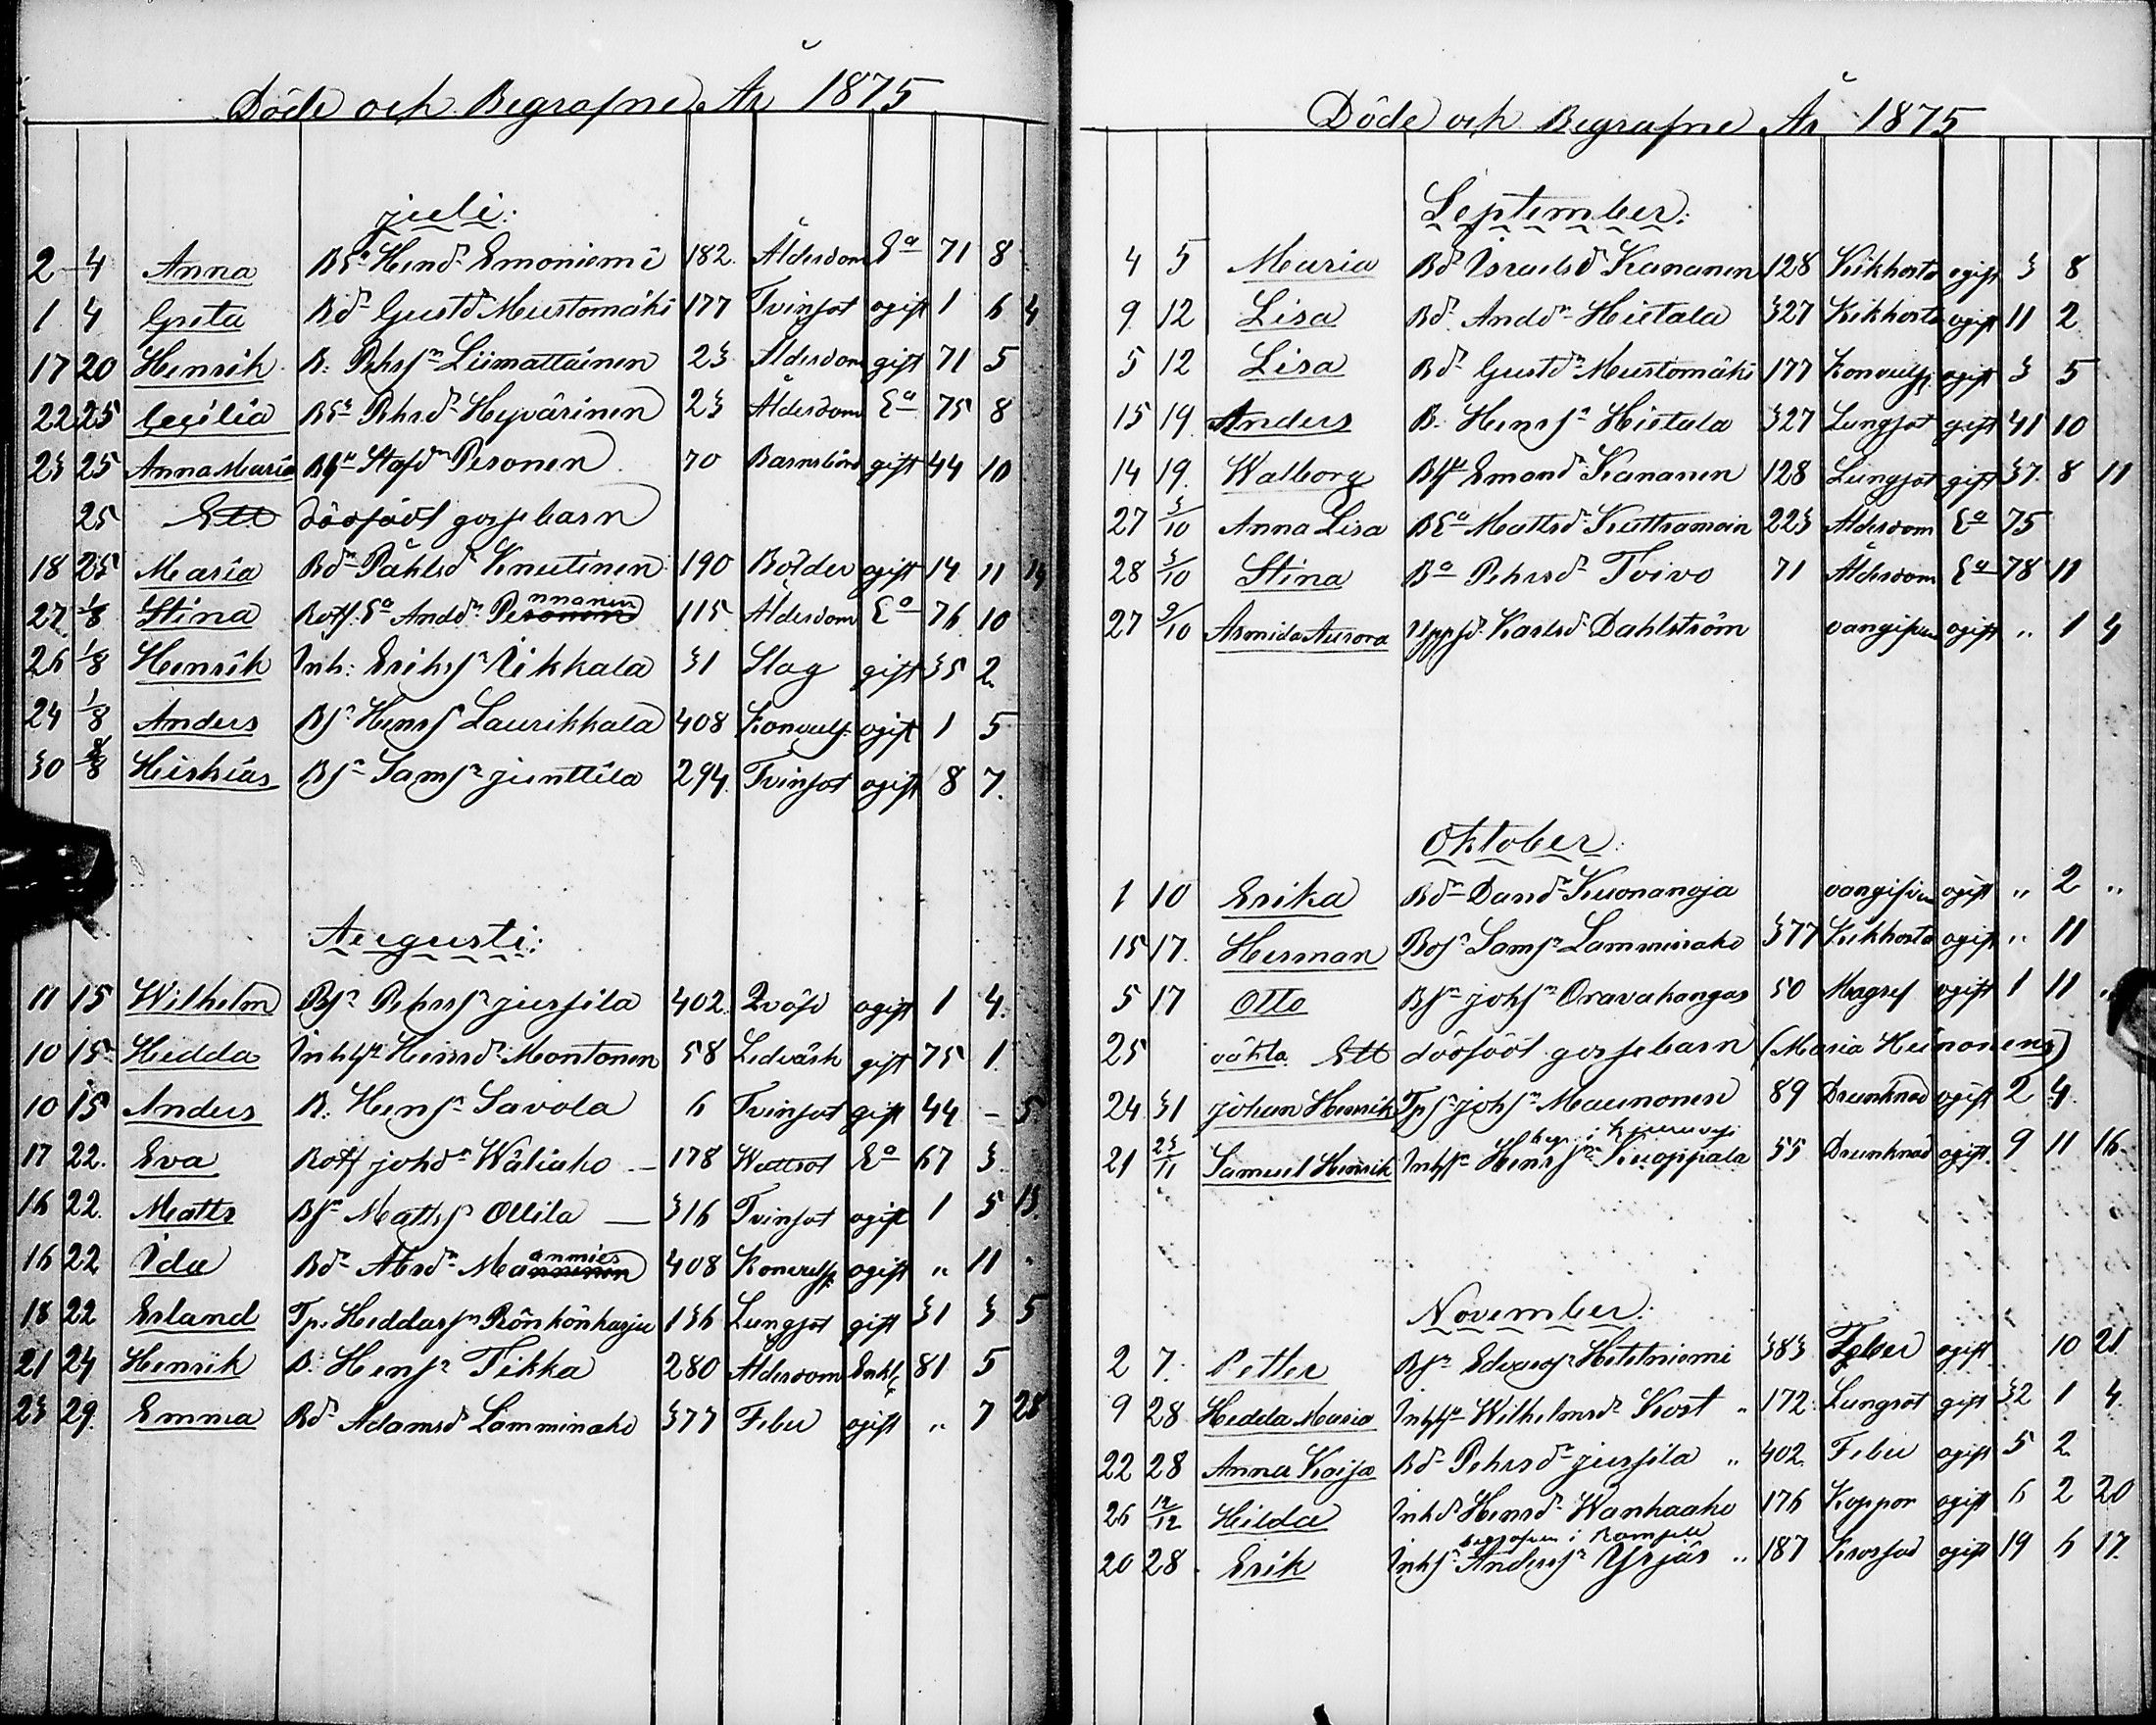 Döde och Begrafne År 1875
juli:
2 4 Anna BEa Hend. Emoniemi 182. Ålderdom Ea 71 8
1 4 Greta Bdr Gustdr Mustomäki 177 Tvinsot ogift 1 6 4
17 20 Henrik B. Pehrsn Liimattainen 23 Ålderdom gift 71 5
22 25 Cecilia BEa Pehrsdr Hepärinen 23 Ålderdom Ea 75 8
23 25 Anna Maria Bhu Stafdr Pesonen 70 Barnsbörd gift 44 10
25 Ett dödfödt gossebarn
18 25 Maria Bdr Påhlsdr Knutinen 190 Bölder ogift 14 11 14
27 1/8 Stina Rotf. Ea Anddr Pennanen 115. Ålderdom Ea 76 10
26 1/8 Henrik Inh: Eriksn Tikkala 31 Slag gift 35 2
24 1/8 Anders Bsn Henrsn Laurikkala 408 Konvuls. ogift 1 5
30 8/8 Hiskias Bsn Samsn junttila 294 Tvinsot ogift 8 7.
Augusti:
11 15 Wilhelm Bsn Pehrsn jussila 402. Qväfd ogift 1 4.
10 15 Hedda Inhhu Heinrsdr Montonen 58 Ledvärk gift 75 1
10 15 Anders B. Hensn Savola 6 Tvinsot gift 44 – 5
17 22. Eva Rotf johdr Wäliaho — 178 Wattsot Ea 67 3.
16 22. Matts Bsn Mattsn Ollila — 316 Tvinsot ogift 1 5 13.
16 22 Ida Bdr Abrdr Manmies 408 Konvuls. ogift " 11 "
18 22 Erland Tp. Heddasn Rönkönharju 136 Lungsot gift 31 3 5
21 24 Henrik B. Hensn Tikka 280 Ålderdom Enkl. 81 5
23 29. Emma Bdr Adamsdr Lamminaho 377 Feber ogift " 7 28
Döde och Begrafne År 1875
September:
4 5 Maria Bdr Israelsdr Kananen 128 Kikhosta ogift 3 8
9 12 Lisa Bdr Anddr Hietala 327 Kikhosta ogift 11 2
5 12 Lisa Bdr Gustdr Mustomäki 177 Konvuls. ogift 3 5
15 19. Anders B. Henrsn Hietala 327 Lungsot gift 41 10
14 19. Walborg Bhu Emandr Kananen 128 Lungsot gift 37. 8 11
27 3/10 Anna Lisa BEa Mattsdr 223 Ålderdom Ea 75
28 3/10 Stina Ba Pehrsdr Toivo 71 Ålderdom Ea 78 11
27 9/10 Armida Aurora Karlsdr Dahlström oangifven ogift " 1 4
Oktober:
1 10 Erika Bdr Davdr Kuonanoja oangifven ogift " 2 "
15 17. Herman Bosn Samsn Lamminaho 377 Kikhosta ogift " 11
5 17 Otto Bsn johsn Oravakangas 50 Magref ogift 1 11 "
25 oäkta Ett dödfödt gossebarn (Maria Heinonens)
24 31 johan Henrik Tpsn johsn Maunonen 89 Drunknad ogift 2 4.
begr. i Kjuruvesi
21 23/11 Samuel Henrik Inhsn Henrsn Kuoppala 55 Drunknad ogift 9 11 16
November:
2 7. Petter Bsn Edvardsn Hetelniemi 383 Feber ogift 10 21
9 28 Hedda Maria Inhhu Wilhelmsdr Kost " 172 Lungsot gift 32 1 4.
22 28 Anna Kaisa Bdr Pehrsdr jussila " 402. Feber ogift 5 2
26 12/12 Hilda Inhdr Henrdr Wanhaaho 176 Koppor ogift 6 2 20
begrafven i
20 28. Erik Inhsn Anderssn Yrjäs " 187 ogift 19 6 17.